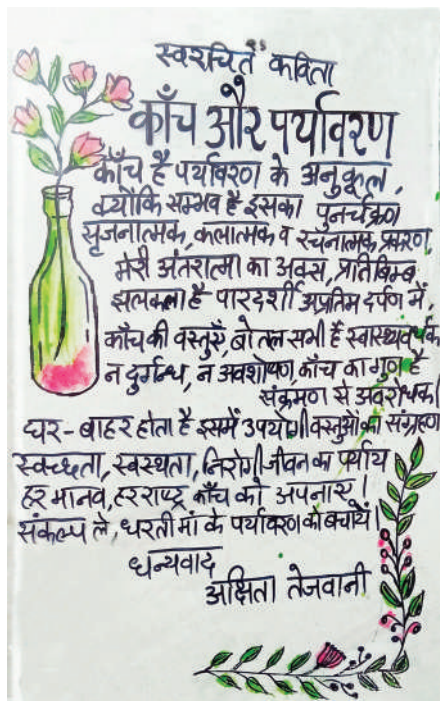 स्वरचित कविता
काँच और पर्यावरण
काँच है पर्यावरण के अनुकूल,
क्योंकि सम्भव है इसका पुनर्चक्रण
सृजनात्मक, कलात्मक व रचनात्मक प्रकरण,
मेरी अंतरात्मा का अक्स, प्रतिबिम्ब
झलकता है पारदर्शी अप्रतिम दर्पण में,
काँच की वस्तुएँ, बोतल सभी हैं स्वास्थ्यवर्धक
न दुर्गन्ध, न अवशोषण, काँच का गुण है
संक्रमण से अवरोधक।
घर-बाहर होता है इसमें उपयोगी वस्तुओं का संग्रहण
स्वच्छता, स्वस्थता, निरोगी जीवन का पर्याय
हर मानव, हर राष्ट्र काँच को अपनाए।
संकल्प ले, धरती मां के पर्यावरण को बचायें।
धन्यवाद
अक्षिता तेजवानी